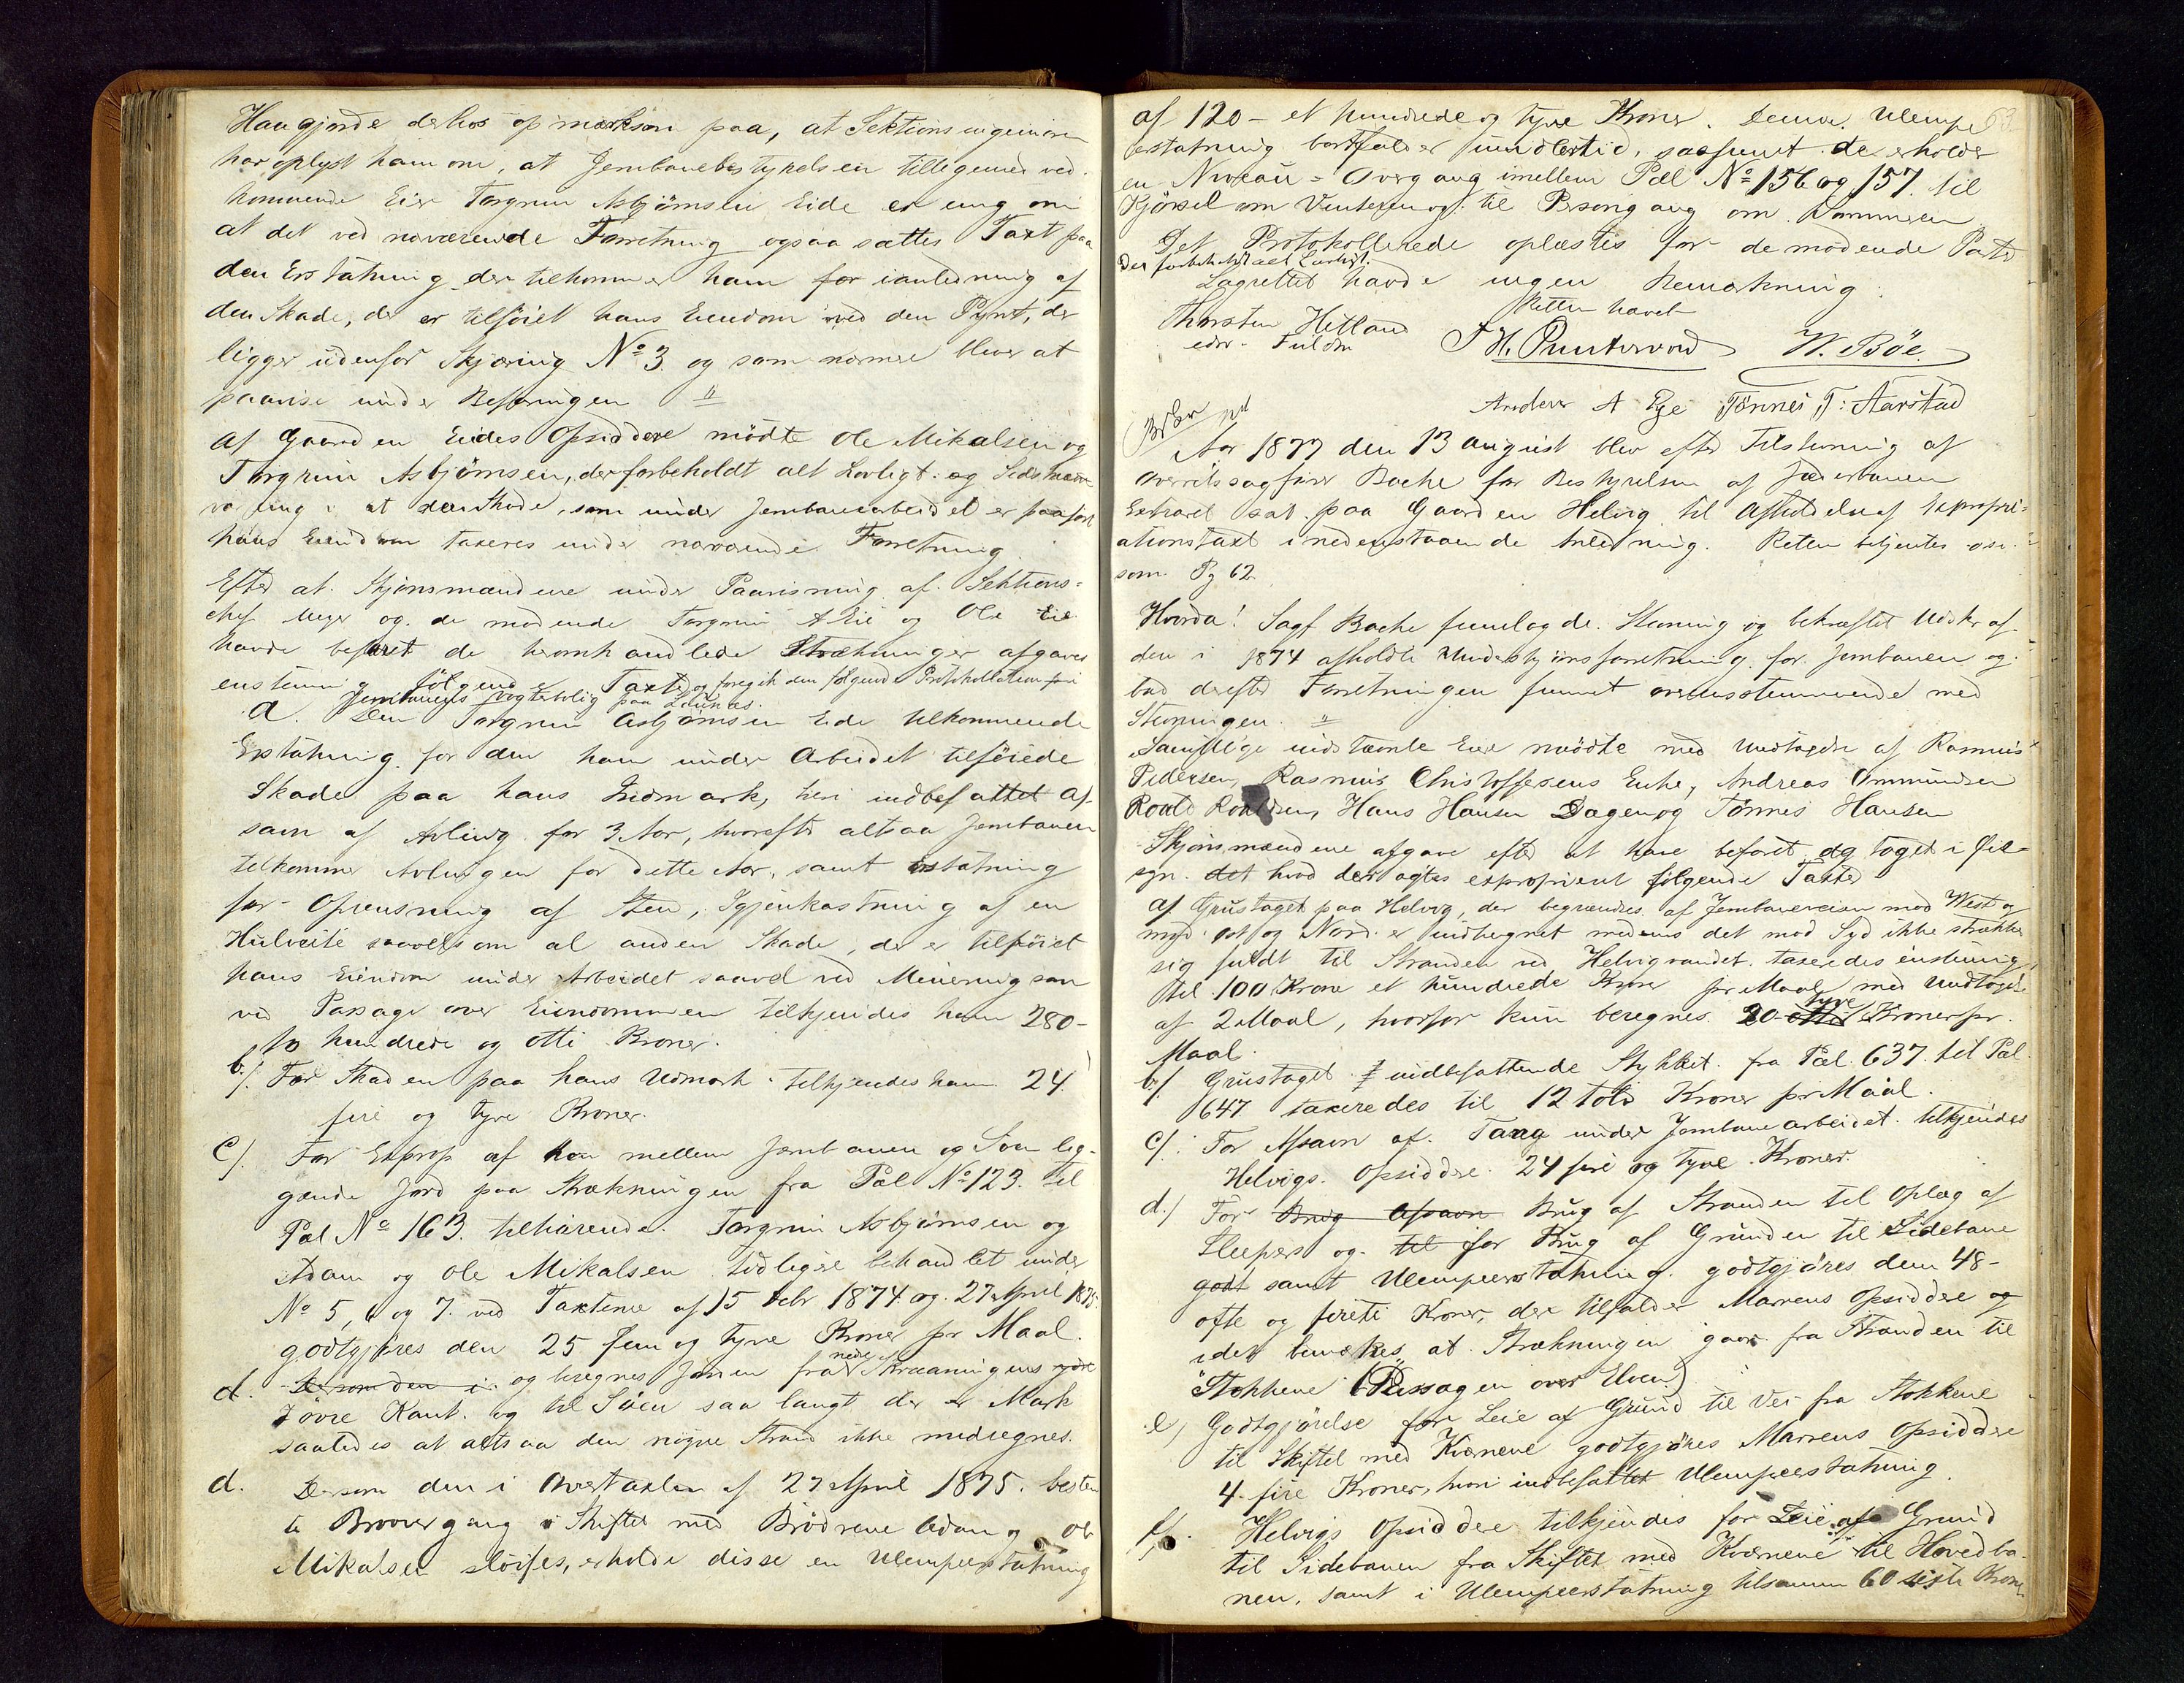 Han gjorde derhos opmerksom paa, at Sektionsingeniøren
har oplyst ham om, at Jernbanebestyrelsen tilligemed ved-
kommende Eier Torgrim Asbjørnsen Eide er enig om
at det ved nærværende Forretning ogsaa sættes Taxt paa
den Erstatning der tilkommer ham for i anledning af
den Skade, der er tilføiet hans Eiendom ved den Pynt, der
ligger udenfor Skjæring No 3 og som nærmere bliver at
paavise under Befaringen "
Af Gaarden Eides Opsiddere mødte Ole Mikalsen og
Torgrim Asbjørnsen, der forbeholdt alt Lovligt og
at den Skade, som under Jernbanearbeidet er paaført
hans Eiendom taxeres under nærværende Forretning
Efter at Skjønsmændene under Paavisning af Sektions-
chef og de mødende Torgrim A Eie og Ole Eie
havde befaret de heromhandlede Strækninger afgaves
enstemmig følgende Taxter og foregik den følgende Protokollation
Jernbanens Vogterbolig paa
a. Den Torgrim Asbjørnsen Eide tilkommende
Erstatning for den ham under Arbeidet tilføiede
Skade paa hans Indmark, heri indbefattet Af-
savn af Avling for 3 Aar, hvorefter altsaa Jernbanen
tilkommer Avlingen for dette Aar, samt Erstatning
for Oprensning af Sten, Igjenkastning af en
Hulveite saavelsom al anden Skade, der er tilføiet
hans Eiendom under Arbeidet saavel ved Minering som
ved Passage over Eiendommen tilkjendes ham 280-
to hundrede og otti Kroner.
b/. For Skaden paa hans Udmark tilkjendes ham 24
fire og tyve Kroner.
c/. For Exprop af den mellem Jernbanen og Søen lig-
gende Jord paa Strækningen fra Pæl No 123 til
Pæl No 163. tilhørende Torgrim Asbjørnsen og
Adam og Ole Mikalsen tidligere behandlet under
No 5, 6 og 7. ved Taxterne af 15 Febr 1874 og 27 April 1875
godtgjøres den 25 fem og tyve Kroner pr Maal.
d. Dersom den i og beregnes Jorden fra nedre Skraaningens ydre
øvre Kant og til Søen saa langt der er Mark
saaledes at altsaa den nøgne Strand ikke medregnes.
d. Dersom den i Overtaxten af 27 April 1875 bestem
te Broovergang i Skiftet med Brødrene Adam og Ole
Mikalsen sløifes, erholde disse en Ulempeerstatning
af 120 - et hundrede og tyve Kroner. Denne Ulempe
erstatning bortfalder imidlertid, saafremt de erholder
en Niveau-Overgang imellem Pæl No 156 og 157 til
Kjørsel om Vinteren og til Persongang om Sommeren
Det Protokollerede oplæstes for de mødende Parter
der forbeholdt alt Lovligt.
Lagrettet havde ingen Bemærkning
Retten hævet
Thorsten Hetland
edv. Fuldm
T H. Puntervold W. Bøe
Anders A Ege Tønnes T: Aarstad
Aar 1877 den 13 august blev efter Tilstevning af
Overretssagfører Bache for Bestyrelsen af Jæderbanen
Extraret sat paa Gaarden Helvig til Afholdelse af Expropri-
ationstaxt i nedenstaaende Anledning. Retten betjentes
som Pg 62.
Hvorda! Sagf Bache fremlagde Stevning og bekræftet Udskr af
den i 1874 afholdte Underskjønsforretning for Jernbanen og
bad derefter Forretningen fremmet overensstemmende med
Stevningen. "
Samtlige indstævnte Eiere mødte med Undtagelse af Rasmus
Pedersen, Rasmus Christoffersens Enke, Andreas Ommundsen
Roald Roaldsen, Hans Hansen Dagen og Tønnes Hansen
Skjønsmændene afgave efter at have befaret og taget i Øie-
syn det hvad der agtes exproprieret følgende Taxter
a/ Grustaget paa Helvig, der begrændses af Jernbaneveien mod West og
mod Øst og Nord er indhegnet medens det mod Syd ikke strækker
sig fuldt til Stranden ved Helvigvandet taxeredes enstemmig
til 100 Krone et hundrede Kroner pr Maal med Undtagelse
af 2 Maal, hvorfor kun beregnes 20 otti tyve Kroner pr.
Maal.
b/ Grustaget indbefattende Stykket fra Pæl 637 til Pæl
647 taxeredes til 12 tolv Kroner pr Maal.
c/. For Afsavn af Tang under Jernbanearbeidet tilkjendes
Helvigs Opsiddere 24 fire og tyve Kroner.
d./ For Brug Afsavn Brug af Stranden til Oplæg af
Sleepers og til for Brug af Grunden til Sidebane
godt samt Ulempeerstatning godtgjøres dem 48-
otte og firети Kroner, der tilfalder Marrens Opsiddere og
idet bemærkes, at Strækningen gaar fra Stranden til
Stokkene (Passagen over Elven)
e, Godtgjørelse for Leie af Grund til Vei fra Stokkene
til Skiftet med Kvernene godtgjøres Marrens Opsiddere
4 fire Kroner, heri indbefattet Ulempeerstatning.
f/. Helvigs Opsiddere tilkjendes for Leie af Grund
til Sidebanen fra Skiftet med Kvernene til Hovedba-
nen, samt i Ulempeerstatning tilsammen 60 sexti Kroner